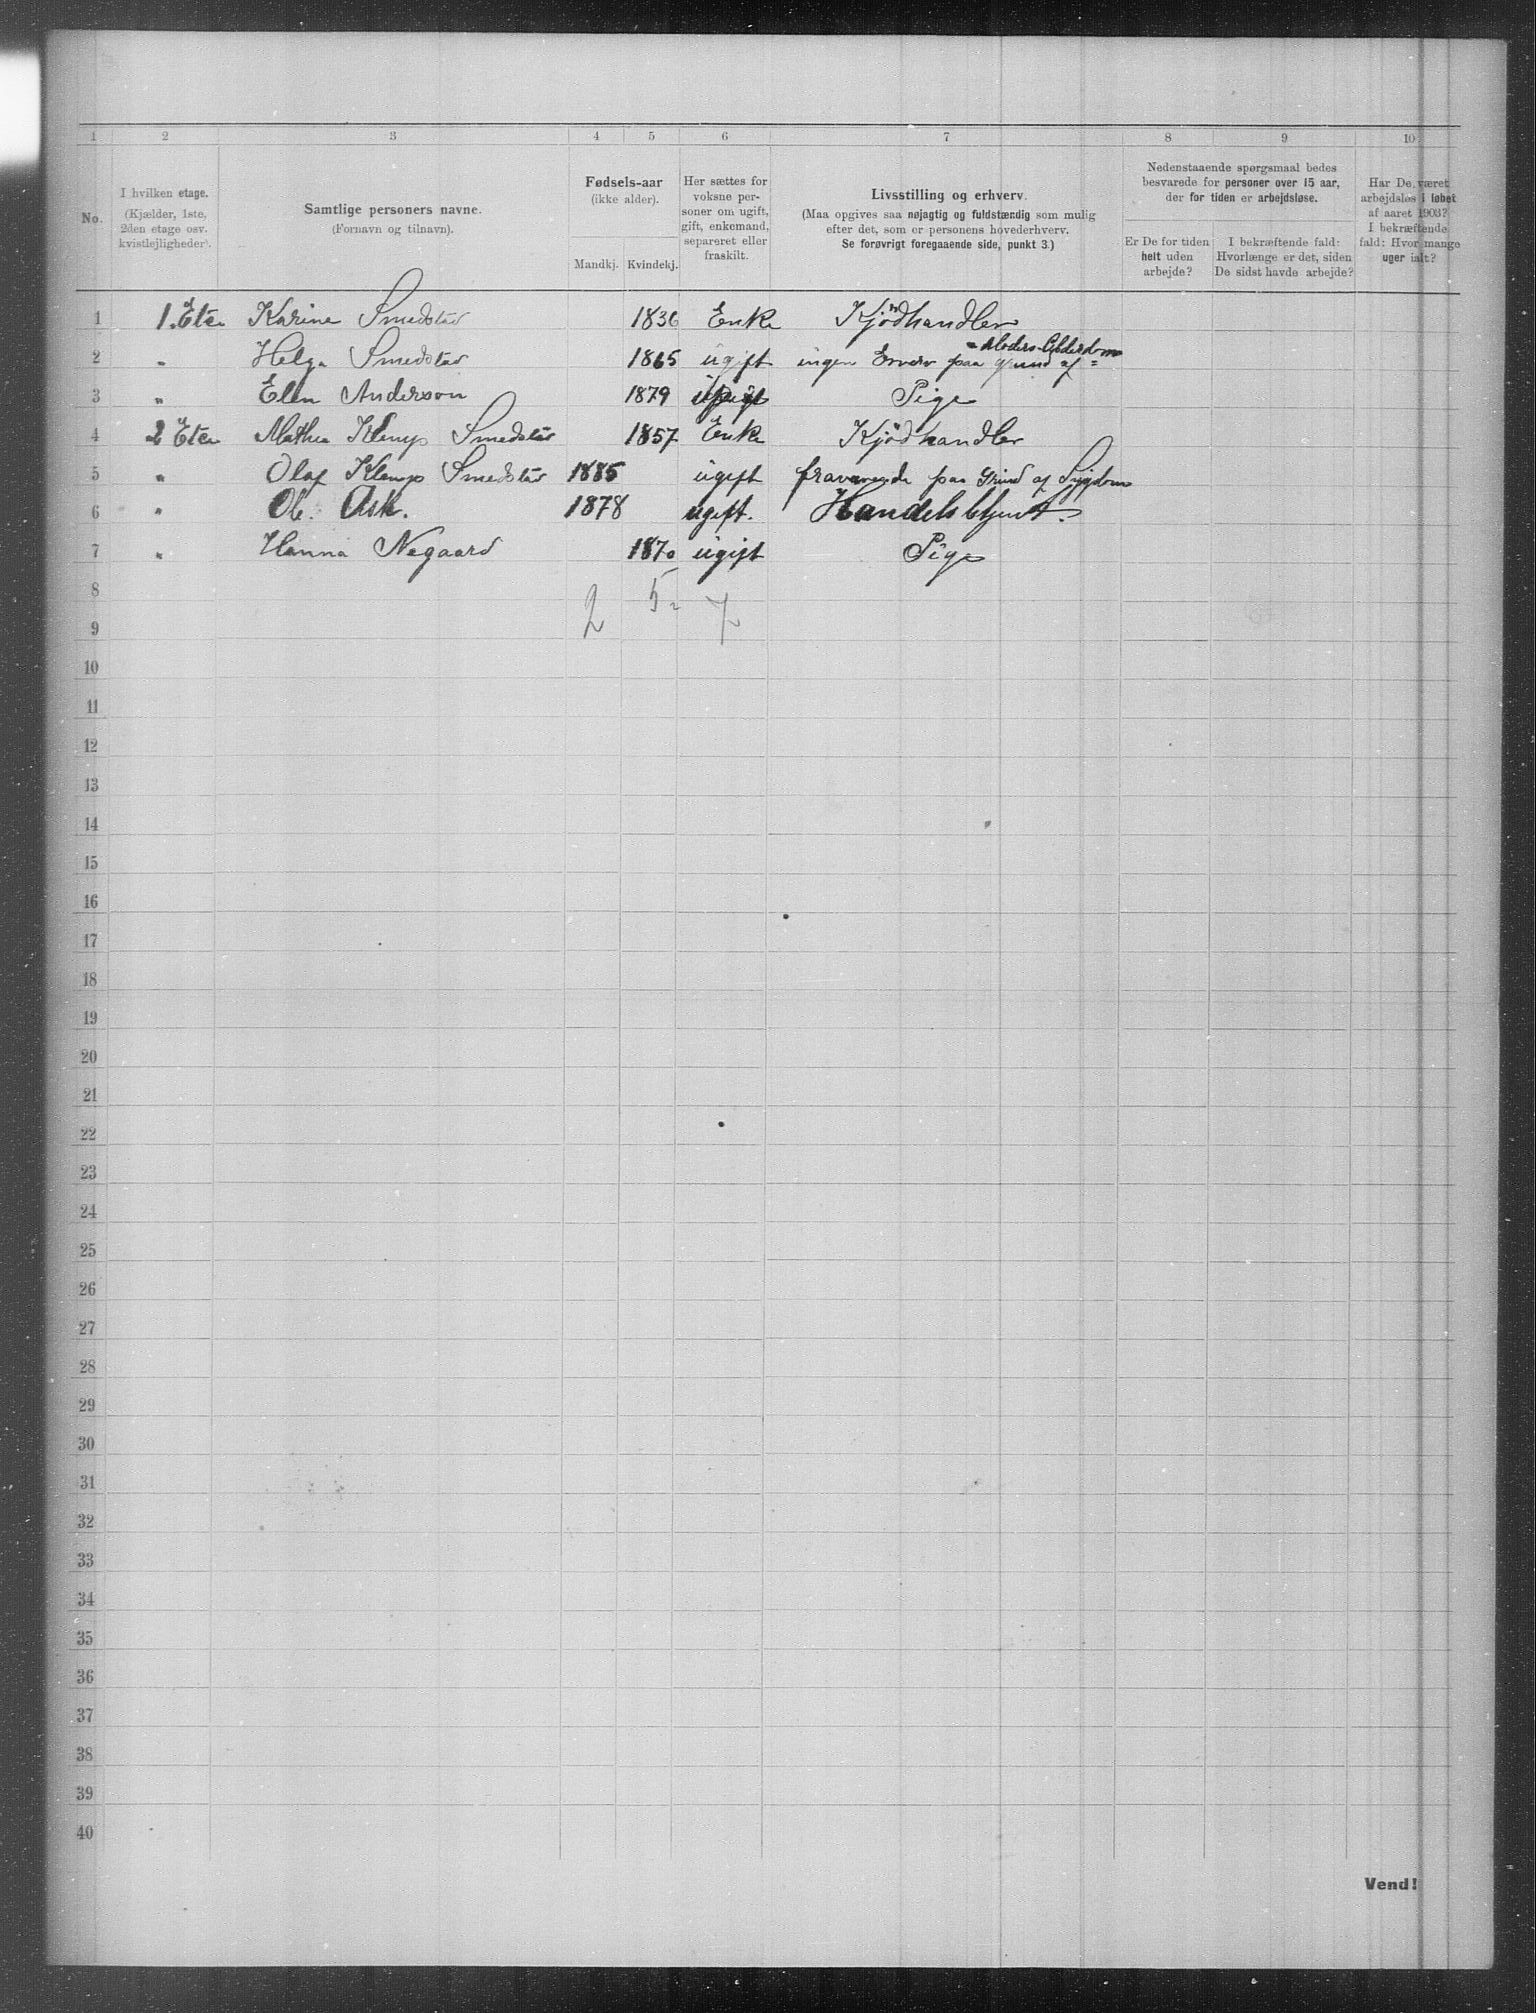 1 2 3 4 5 6 7 8 9 10
No.
I hvilken etage.
(Kjælder, 1ste,
2den etage osv.
kvistlejligheder).
Samtlige personers navne.
(Fornavn og tilnavn).
Fødsels-aar
(ikke alder).
Mandkj. Kvindekj.
Her sættes for
voksne per-
soner om ugift,
gift, enkemand,
separeret eller
fraskilt.
Livsstilling og erhverv.
(Maa opgives saa nøjagtig og fuldstændig som mulig
efter det, som er personens hovederhverv.
Se forøvrigt foregaaende side, punkt 3.)
Nedenstaaende spørgsmaal bedes
besvarede for personer over 15 aar,
der for tiden er arbejdsløse.
Er De for tiden
helt uden
arbejde?
I bekræftende fald:
Hvorlænge er det, siden
De sidst havde arbejde?
Har De været
arbejdsløs i løbet
af aaret 1903?
I bekræftende
fald: Hvor mange
uger ialt?
1 1. Ete Karine Smedstad 1836 Enke Kjödhandler
2 " Helga Smedstad 1865 ugift ingen Erverv paa Grund af = Moders Alderdom
3 " Elen Anderson 1879 ugift Pige
4 2 Ete Mathea Klemp Smedstad 1857 Enke Kjödhandler
5 " Olaf Klemp Smedstad 1885 ugift fraværende paa Grund af Sygdom
6 " Ole Ask. 1878 ugift. Handelsbetjent.
7 " Hanna Negaard 1870 ugift Pige
8
2 5 = 7
9
10
11
12
13
14
15
16
17
18
19
20
21
22
23
24
25
26
27
28
29
30
31
32
33
34
35
36
37
38
39
40
Vend!